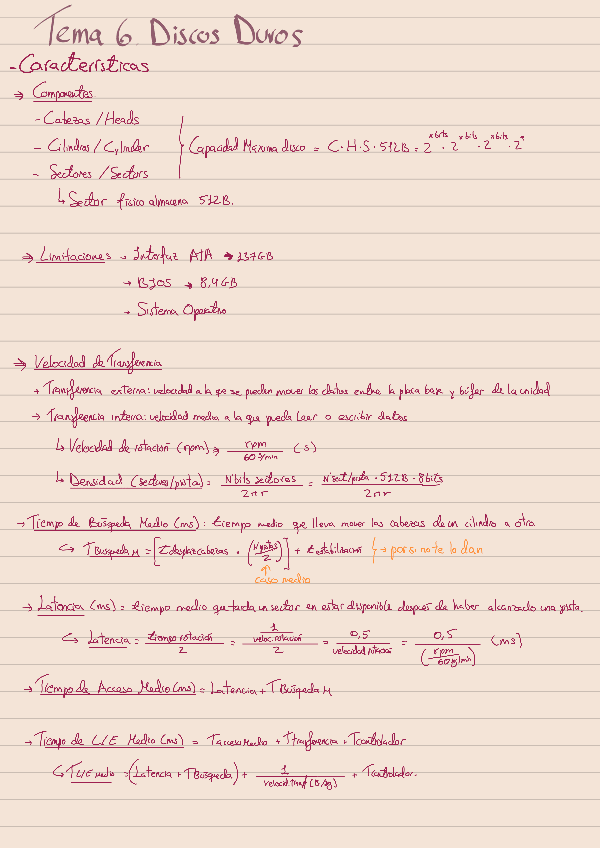 Tema 6. Discos Duros
- Características
→ Componentes
- Cabezas / Heads
- Cilindros / Cylinder
- Sectores / Sectors
Capacidad Máxima disco = C·H·S·512B = 2^xbits · 2^xbits · 2^xbits · 2^9
↳ Sector físico almacena 512B.
⇒ Limitaciones → Interfaz ATA → 137GB
→ BIOS → 8,4GB
→ Sistema Operativo
⇒ Velocidad de Transferencia
→ Transferencia externa: velocidad a la que se pueden mover los datos entre la placa base y búfer de la unidad
→ Transferencia interna: velocidad media a la que pueda leer o escribir datos
↳ Velocidad de rotación (rpm) ⇒ rpm / 60 s/min (s)
↳ Densidad (sectores/pista) = Nºbits sectores / 2πr = Nºsect/pista · 512B · 8bits / 2πr
→ Tiempo de Búsqueda Medio (ms): tiempo medio que lleva mover las cabezas de un cilindro a otro.
↳ TBusqueda M = [t desplaz cabezas · (Nº pistas / 2)] + t estabilización } → por si no te lo dan
↑
caso medio
→ Latencia (ms) = tiempo medio que tarda un sector en estar disponible después de haber alcanzado una pista.
↳ Latencia = tiempo rotación / 2 = (1 / veloc.rotación) / 2 = 0,5 / velocidad rotación = 0,5 / (rpm / 60 s/min) (ms)
→ Tiempo de Acceso Medio (ms) = Latencia + TBúsqueda M
→ Tiempo de L/E Medio (ms) = Tacceso Medio + Ttransferencia + Tcontrolador
↳ TL/E medio = (Latencia + TBúsqueda) + 1 / velocid.transf (B/sg) + Tcontrolador.